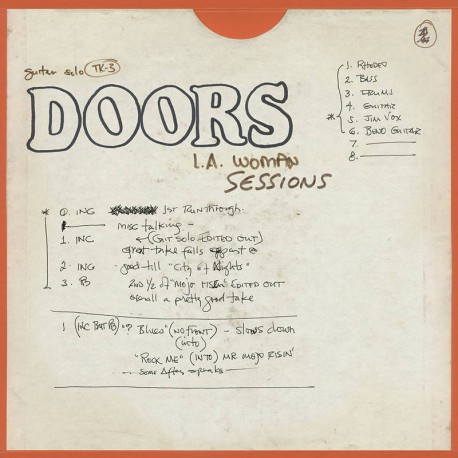 guitar solo TK-3
DOORS
L.A. WOMAN
SESSIONS
1. RHODES
2. BASS
3. DRUMS
4. GUITAR
* 5. JIM VOX
6. BEND GUITAR
7.
8.
* 0. INC 1ST RUN through.
misc talking -
1. INC (GIT SOLO EDITED OUT)
great take falls apart @
2. INC good till "City of Nights"
3. B 2ND 1/2 of "MOJO RISEN" EDITED OUT
overall a pretty good take
1 (INC BAT PB) "? Blues" (NO FRONT) - Slows down
(into)
"ROCK ME" (INTO) MR MOJO RISIN'
- Some After